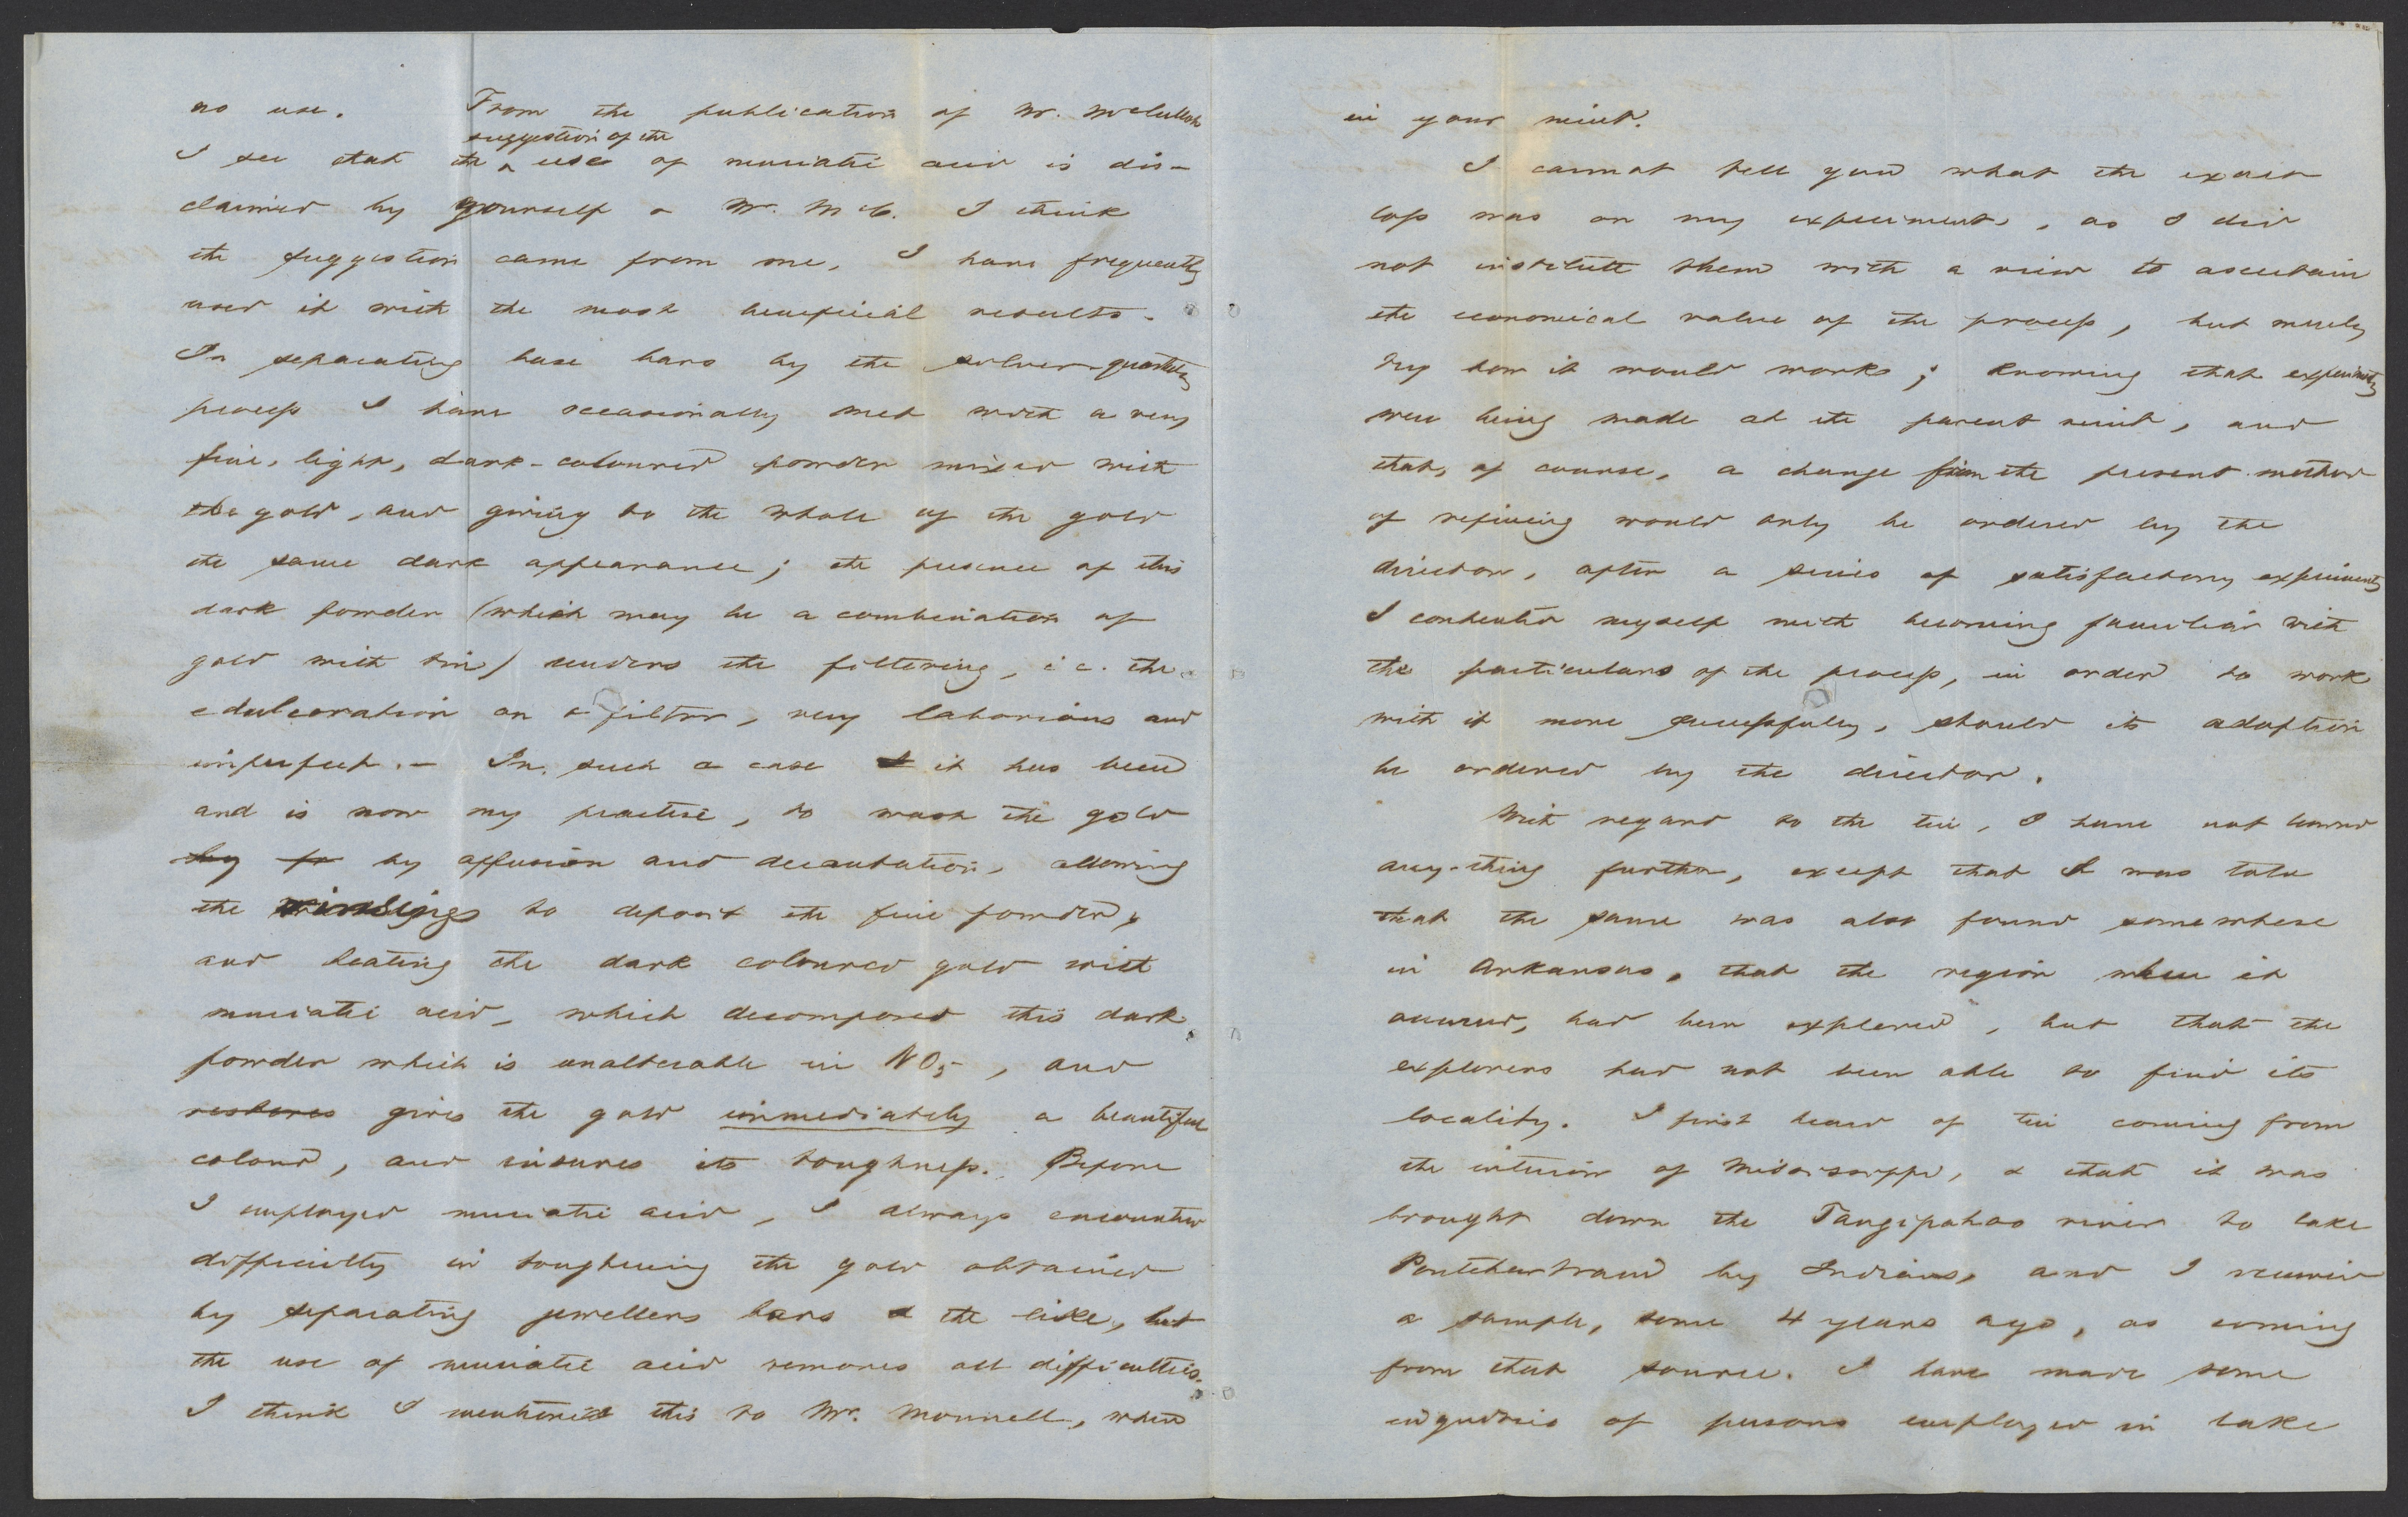 no use. From the publication of Mr. McCulloh
suggestion of the
I see that the ^ use of muriatic acid is dis-
claimed by yourself & Mr. McC. I think
the suggestion came from me. I have frequently
used it with the most beneficial results.
In separating base bars by the silver-quartation
process I have occasionally met with a very
fine, light, dark-coloured powder mixed with
the gold, and giving to the whole of the gold
the same dark appearance; the presence of this
dark powder (which may be a combination of
gold with tin) renders the filtering, i.e. the
edulcoration on a filter, very laborious and
imperfect. – In such a case it has been
and is now my practise, to wash the gold
by by affusion and decantation, allowing
the rinsings to deposit the fine powder,
and heating the dark coloured gold with
muriatic acid, which decomposes this dark
powder which is unalterable in NO5, and
restores gives the gold immediately a beautiful
colour, and insures its toughness. Before
I employed muriatic acid, I always encountered
difficulty in toughening the gold obtained
by separating jewellers bars & the like, but
the use of muriatic acid removes all difficulties.
I think I mentioned this to Mr. Monnell, when
in your mint.
I cannot tell you what the exact
loss was on my experiments, as I did
not institute them with a view to ascertain
the economical value of the process, but merely
try how it would work; knowing that experiments
were being made at the parent mint, and
that, of course, a change from the present method
of refining would only be ordered by the
director, after a series of satisfactory experiments
I contented myself with becoming familiar with
the particulars of the process, in order to work
with it more successfully, should its adoption
be ordered by the director.
With regard to the tin, I have not learned
any-thing further, except that I was told
that the same was also found somewhere
in Arkansas, that the region where it
occurred, had been explored, but that the
explorers had not been able to find its
locality. I first heard of tin coming from
the interior of Mississippi, & that it was
brought down the Tangipahao river to lake
Pontchartrain by Indians, and I received
a sample, some 4 years ago, as coming
from that source. I have made some
enquiries of persons employed in lake